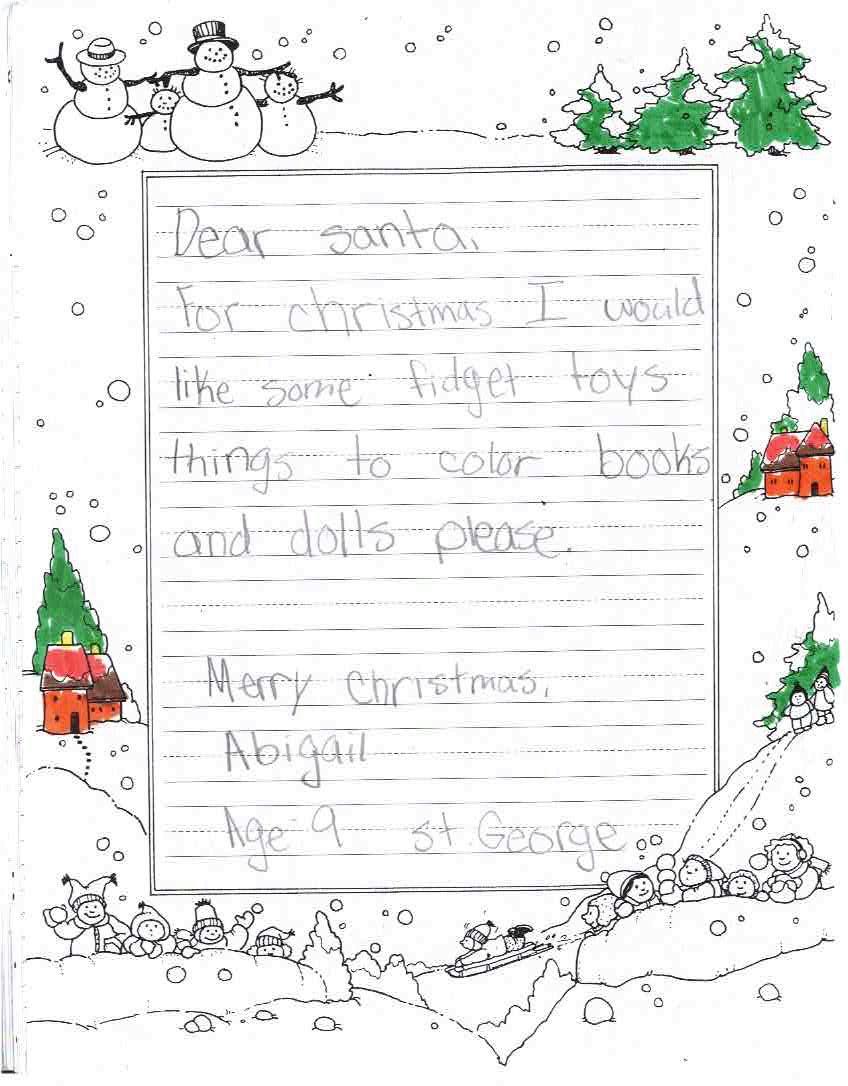 Dear santa,
For christmas I would
like some fidget toys
things to color books
and dolls please.
Merry christmas,
Abigail
Age 9 st. George